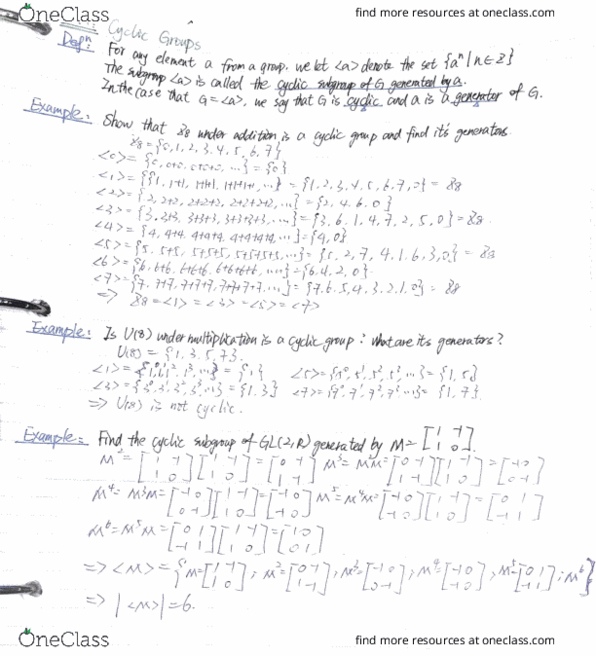 OneClass
find more resources at oneclass.com
Cyclic Groups
Defn: For any element a from a group. we let <a> denote the set {aⁿ | n∈Z}
The subgroup <a> is called the cyclic subgroup of G generated by a.
In the case that G=<a>, we say that G is cyclic and a is a generator of G.
Example: Show that Z8 under addition is a cyclic group and find it's generators.
Z8 = {0, 1, 2, 3, 4, 5, 6, 7}
<0> = {0, 0+0, 0+0+0, ...} = {0}
<1> = {1, 1+1, 1+1+1, 1+1+1+1, ...} = {1, 2, 3, 4, 5, 6, 7, 0} = Z8
<2> = {2, 2+2, 2+2+2, 2+2+2+2, ...} = {2, 4, 6, 0}
<3> = {3, 3+3, 3+3+3, 3+3+3+3, ...} = {3, 6, 1, 4, 7, 2, 5, 0} = Z8
<4> = {4, 4+4, 4+4+4, 4+4+4+4, ...} = {4, 0}
<5> = {5, 5+5, 5+5+5, 5+5+5+5, ...} = {5, 2, 7, 4, 1, 6, 3, 0} = Z8
<6> = {6, 6+6, 6+6+6, 6+6+6+6, ...} = {6, 4, 2, 0}
<7> = {7, 7+7, 7+7+7, 7+7+7+7, ...} = {7, 6, 5, 4, 3, 2, 1, 0} = Z8
=> Z8 = <1> = <3> = <5> = <7>
Example: Is U(8) under multiplication is a cyclic group? What are its generators?
U(8) = {1, 3, 5, 7}.
<1> = {1⁰, 1¹, 1², 1³, ...} = {1} <5> = {5⁰, 5¹, 5², 5³, ...} = {1, 5}
<3> = {3⁰, 3¹, 3², 3³, ...} = {1, 3} <7> = {7⁰, 7¹, 7², 7³, ...} = {1, 7}.
=> U(8) is not cyclic.
Example: Find the cyclic subgroup of GL(2,R) generated by M = [1 -1; 1 0].
M² = [1 -1; 1 0][1 -1; 1 0] = [0 -1; 1 -1] M³ = M²M = [0 -1; 1 -1][1 -1; 1 0] = [-1 0; 0 -1]
M⁴ = M³M = [-1 0; 0 -1][1 -1; 1 0] = [-1 0; -1 0] M⁵ = M⁴M = [-1 0; -1 0][1 -1; 1 0] = [0 1; -1 1]
M⁶ = M⁵M = [0 1; -1 1][1 -1; 1 0] = [1 0; 0 1]
=> <M> = {M = [1 -1; 1 0], M² = [0 -1; 1 -1], M³ = [-1 0; 0 -1], M⁴ = [-1 0; -1 0], M⁵ = [0 1; -1 1], M⁶}
=> |<M>| = 6.
OneClass
find more resources at oneclass.com